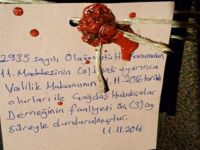 2935 sayılı Olağanüstü Hal Kanununun
11. Maddesinin (o) bendi uyarınca
Valilik Makamının 11.2016 tarihli
olurları ile Çağdaş Hukukçular
Derneğinin faaliyeti üç (3) ay
süreyle durdurulmuştur.
11.11.2016